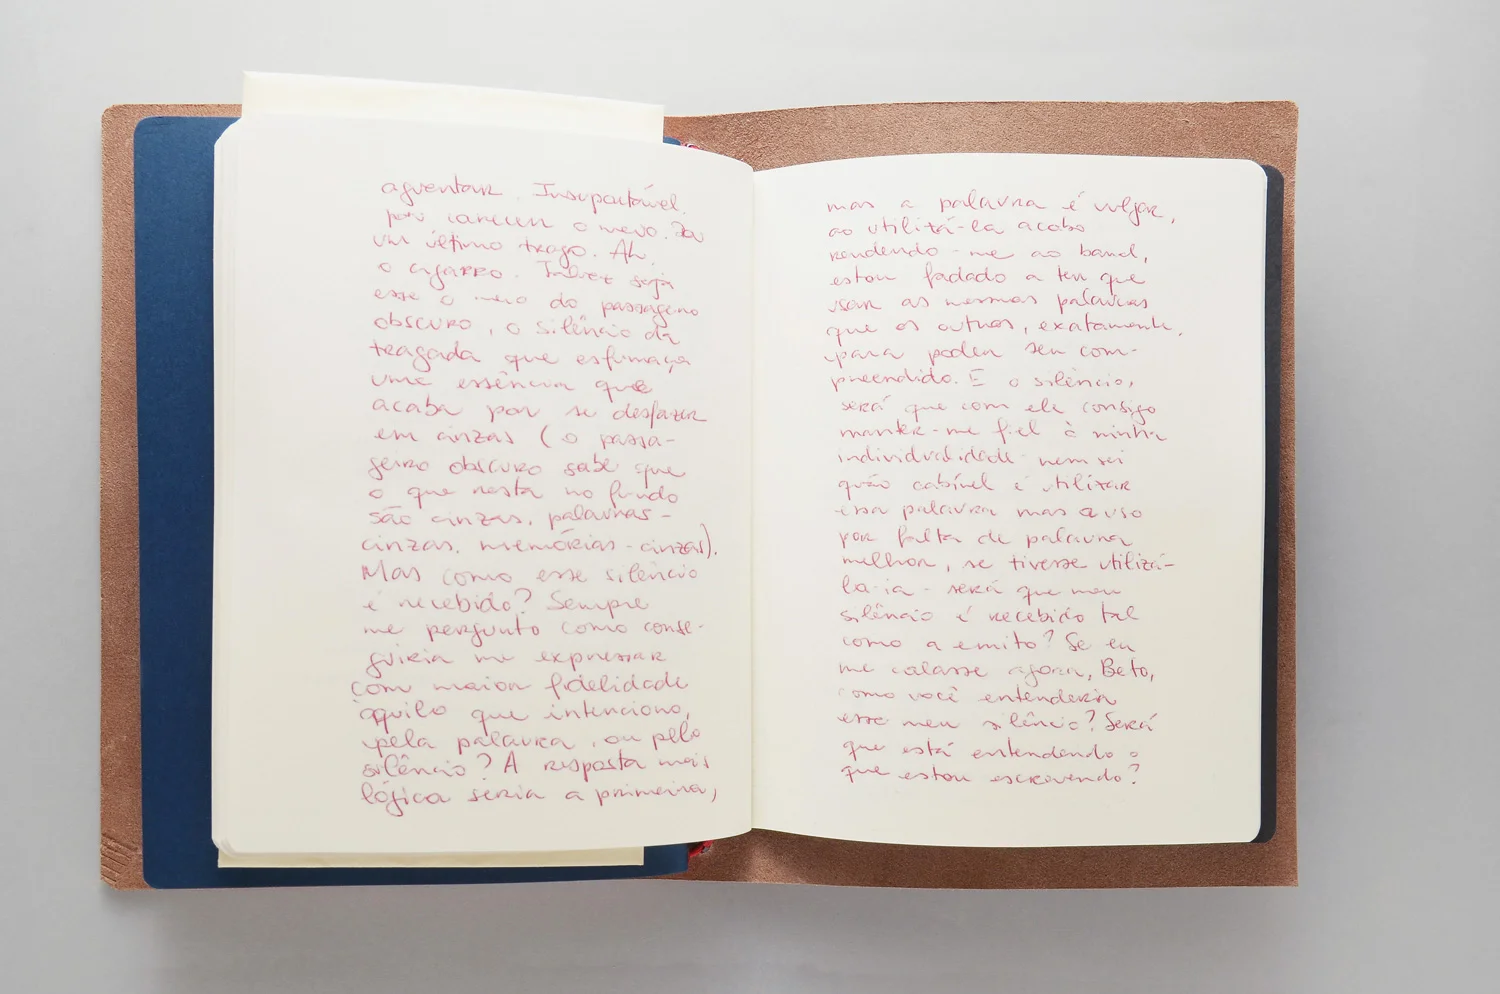 aguentar. Insuportável.
por carecer o meio. Dou
um último trago. Ah,
o cigarro. Talvez seja
esse o meio do passageiro
obscuro, o silêncio da
tragada que esfumaça
uma essência que
acaba por se desfazer
em cinzas (o passa-
geiro obscuro sabe que
o que resta no fundo
são cinzas. palavras-
cinzas. memórias-cinzas).
Mas como esse silêncio
é recebido? Sempre
me pergunto como conse-
guiria me expressar
com maior fidelidade
àquilo que intenciono,
pela palavra, ou pelo
silêncio? A resposta mais
lógica seria a primeira,
mas a palavra é vulgar,
ao utilizá-la acabo
rendendo-me ao banal,
estou fadado a ter que
usar as mesmas palavras
que os outros, exatamente,
para poder ser com-
preendido. E o silêncio,
será que com ele consigo
manter-me fiel à minha
individualidade - nem sei
quão cabível é utilizar
essa palavra mas a uso
por falta de palavra
melhor, se tivesse utilizá-
la-ia - será que meu
silêncio é recebido tal
como a emito? Se eu
me calasse agora, Beto,
como você entenderia
esse meu silêncio? Será
que está entendendo o
que estou escrevendo?